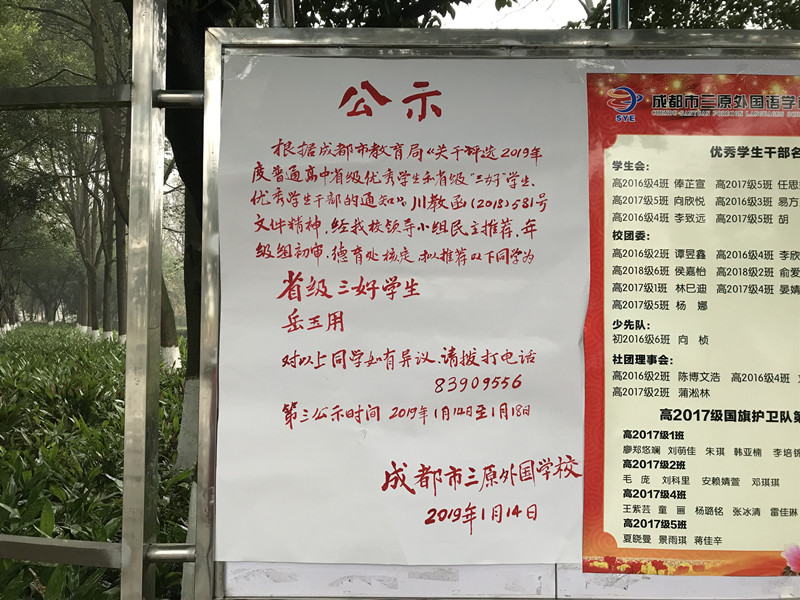 公示
根据成都市教育局《关于评选2019年
度普通高中省级优秀学生和省级"三好"学生、
优秀学生干部的通知》川教函(2018)581号
文件精神,经我校领导小组民主推荐、年
级组初审、德育处核定,拟推荐以下同学为
省级三好学生
岳玉用
对以上同学如有异议,请拨打电话
83909556
第三公示时间 2019年1月14日至1月18日
成都市三原外国学校
2019年1月14日
SYE
成都市三原外国语学
CHENGDU SANYUAN FOREIGN LANGUAGES
优秀学生干部名
学生会:
高2016级4班 俸芷宣 高2017级5班 任思
高2017级5班 向欣悦 高2016级3班 易方
高2016级4班 李致远 高2017级5班 胡
校团委:
高2016级2班 谭昱鑫 高2016级4班 李欣
高2018级6班 侯嘉怡 高2018级2班 俞爱
高2017级1班 林巳迪 高2017级4班 晏婧
高2017级5班 杨 娜
少先队:
初2016级6班 向 桢
社团理事会:
高2016级2班 陈博文浩 高2016级4班
高2017级2班 蒲淞林
高2017级国旗护卫队第
高2017级1班
廖郑悠斓 刘萌佳 朱琪 韩亚楠 李培锦
高2017级2班
毛 庞 刘科里 安赖婧萱 邓琪琪
高2017级4班
王紫芸 童 画 杨璐铭 张冰清 雷佳琳
高2017级5班
夏晓曼 景雨琪 蒋佳辛